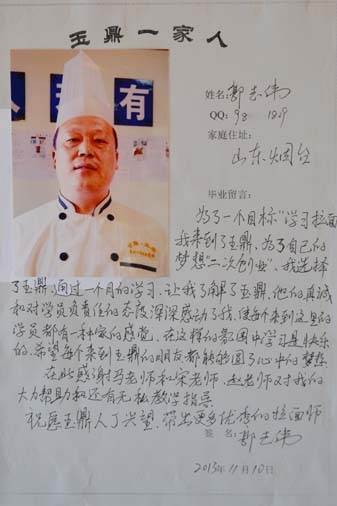 玉鼎一家人
人 有
姓名: 郭志伟
QQ: 98 1819
家庭住址:
山东烟台
毕业留言:
为了一个目标"学习拉面"
我来到了玉鼎,为了自己的
梦想"二次创业",我选择
了玉鼎,通过一个月的学习,让我了解了玉鼎,他们的真诚
和对学员负责任的态度深深感动了我,使每个来到这里的
学员都有一种家的感觉,在这样的氛围中学习是快乐
的,希望每个来到玉鼎的朋友都能够圆了心中的梦想
在此感谢马老师和宋老师,赵老师对我们的
大力帮助和还有无私教学指导
祝愿玉鼎人丁兴望,带出更多优秀的拉面师
签名: 郭志伟
2013年11月10日